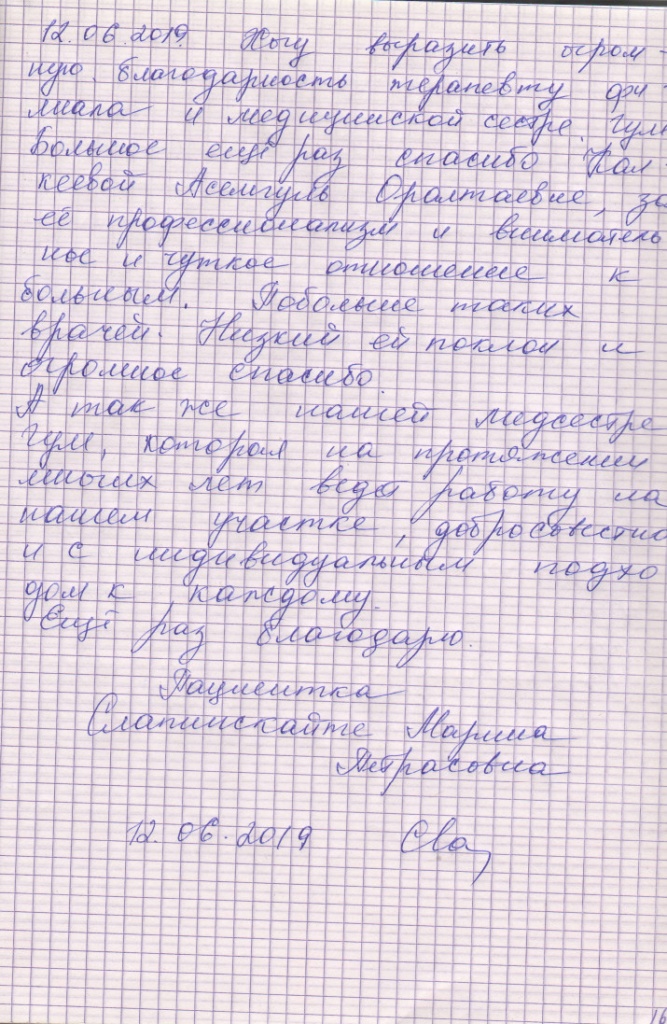 12.06.2019. Хочу выразить огром-
ную благодарность терапевту фи-
лиала и медицинской сестре Гули
Большое ещё раз спасибо Кал
кеевой Асемгуль Оралтаевне, за
её профессионализм и вниматель
ное и чуткое отношение к
больным. Побольше таких
врачей. Низкий ей поклон и
огромное спасибо.
А так же нашей медсестре
Гули, которая на протяжении
многих лет ведёт работу на
нашем участке, добросовестно
и с индивидуальным подхо
дом к каждому.
Ещё раз благодарю.
Пациентка
Слапинскайте Марина
Петрасовна
12.06.2019